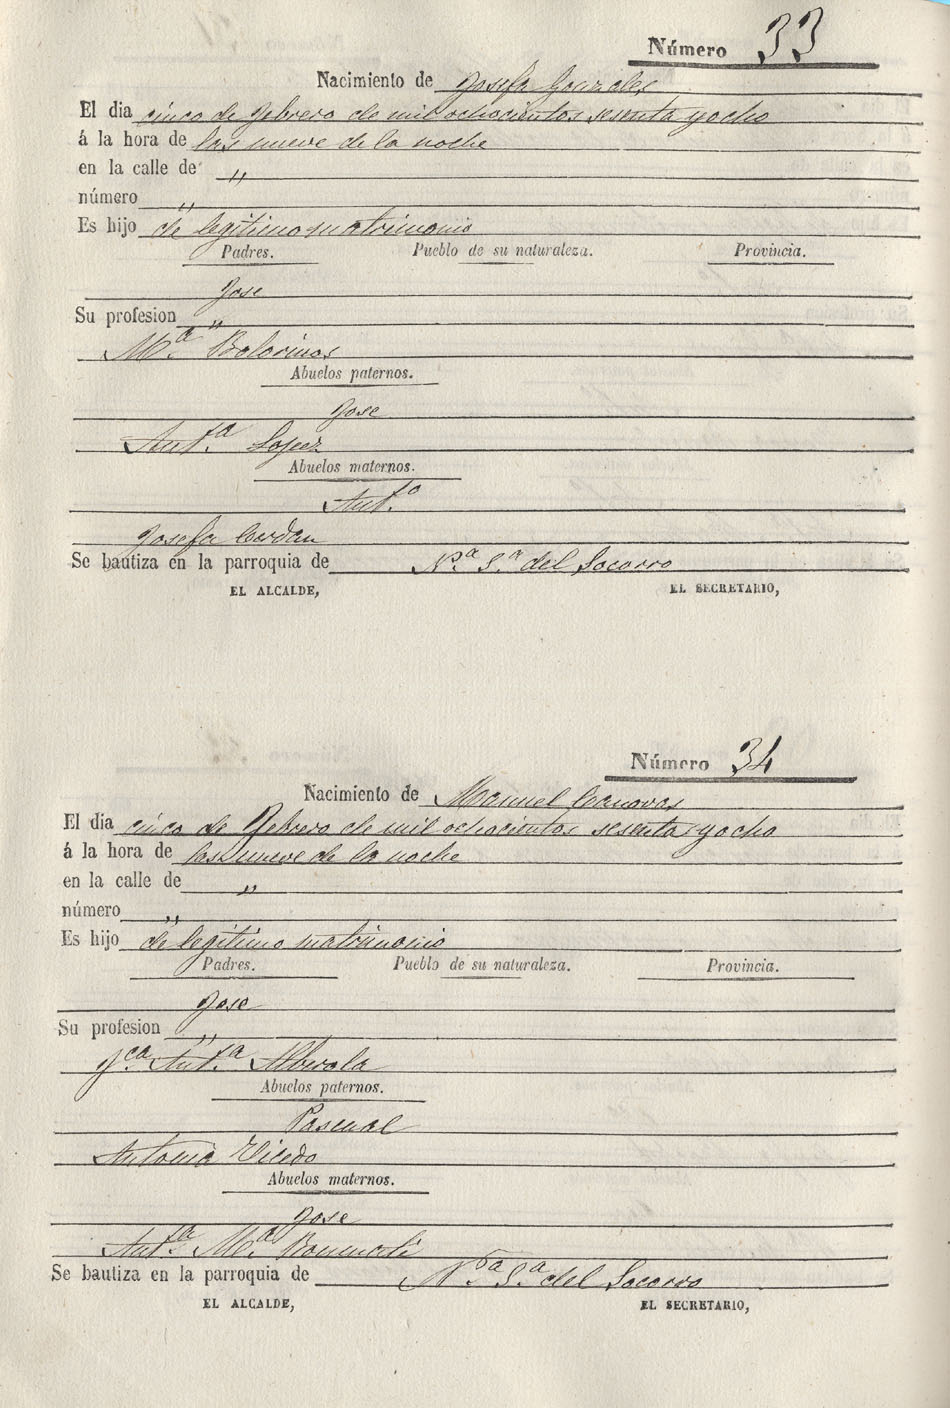 Número 33
Nacimiento de Josefa Gonzales
El dia cinco de Febrero de mil ochocientos sesenta y ocho
á la hora de las nueve de la noche
en la calle de „
número „
Es hijo de legitimo matrimonio
Padres. Pueblo de su naturaleza. Provincia.
Jose
Su profesion „
Mª. Bolorinos
Abuelos paternos.
Jose
Antª. Lopez
Abuelos maternos.
Antº.
Josefa Cerdan
Se bautiza en la parroquia de Nª. Sª. del Socorro
EL ALCALDE, EL SECRETARIO,
Número 34
Nacimiento de Manuel Canovas
El dia cinco de Febrero de mil ochocientos sesenta y ocho
á la hora de las nueve de la noche
en la calle de „
número „
Es hijo de legitimo matrimonio
Padres. Pueblo de su naturaleza. Provincia.
Jose
Su profesion „
Fca. Antª. Alberola
Abuelos paternos.
Pascual
Antonia Vicedo
Abuelos maternos.
Jose
Antª. Mª. Bonmati
Se bautiza en la parroquia de Nª. Sª. del Socorro
EL ALCALDE, EL SECRETARIO,